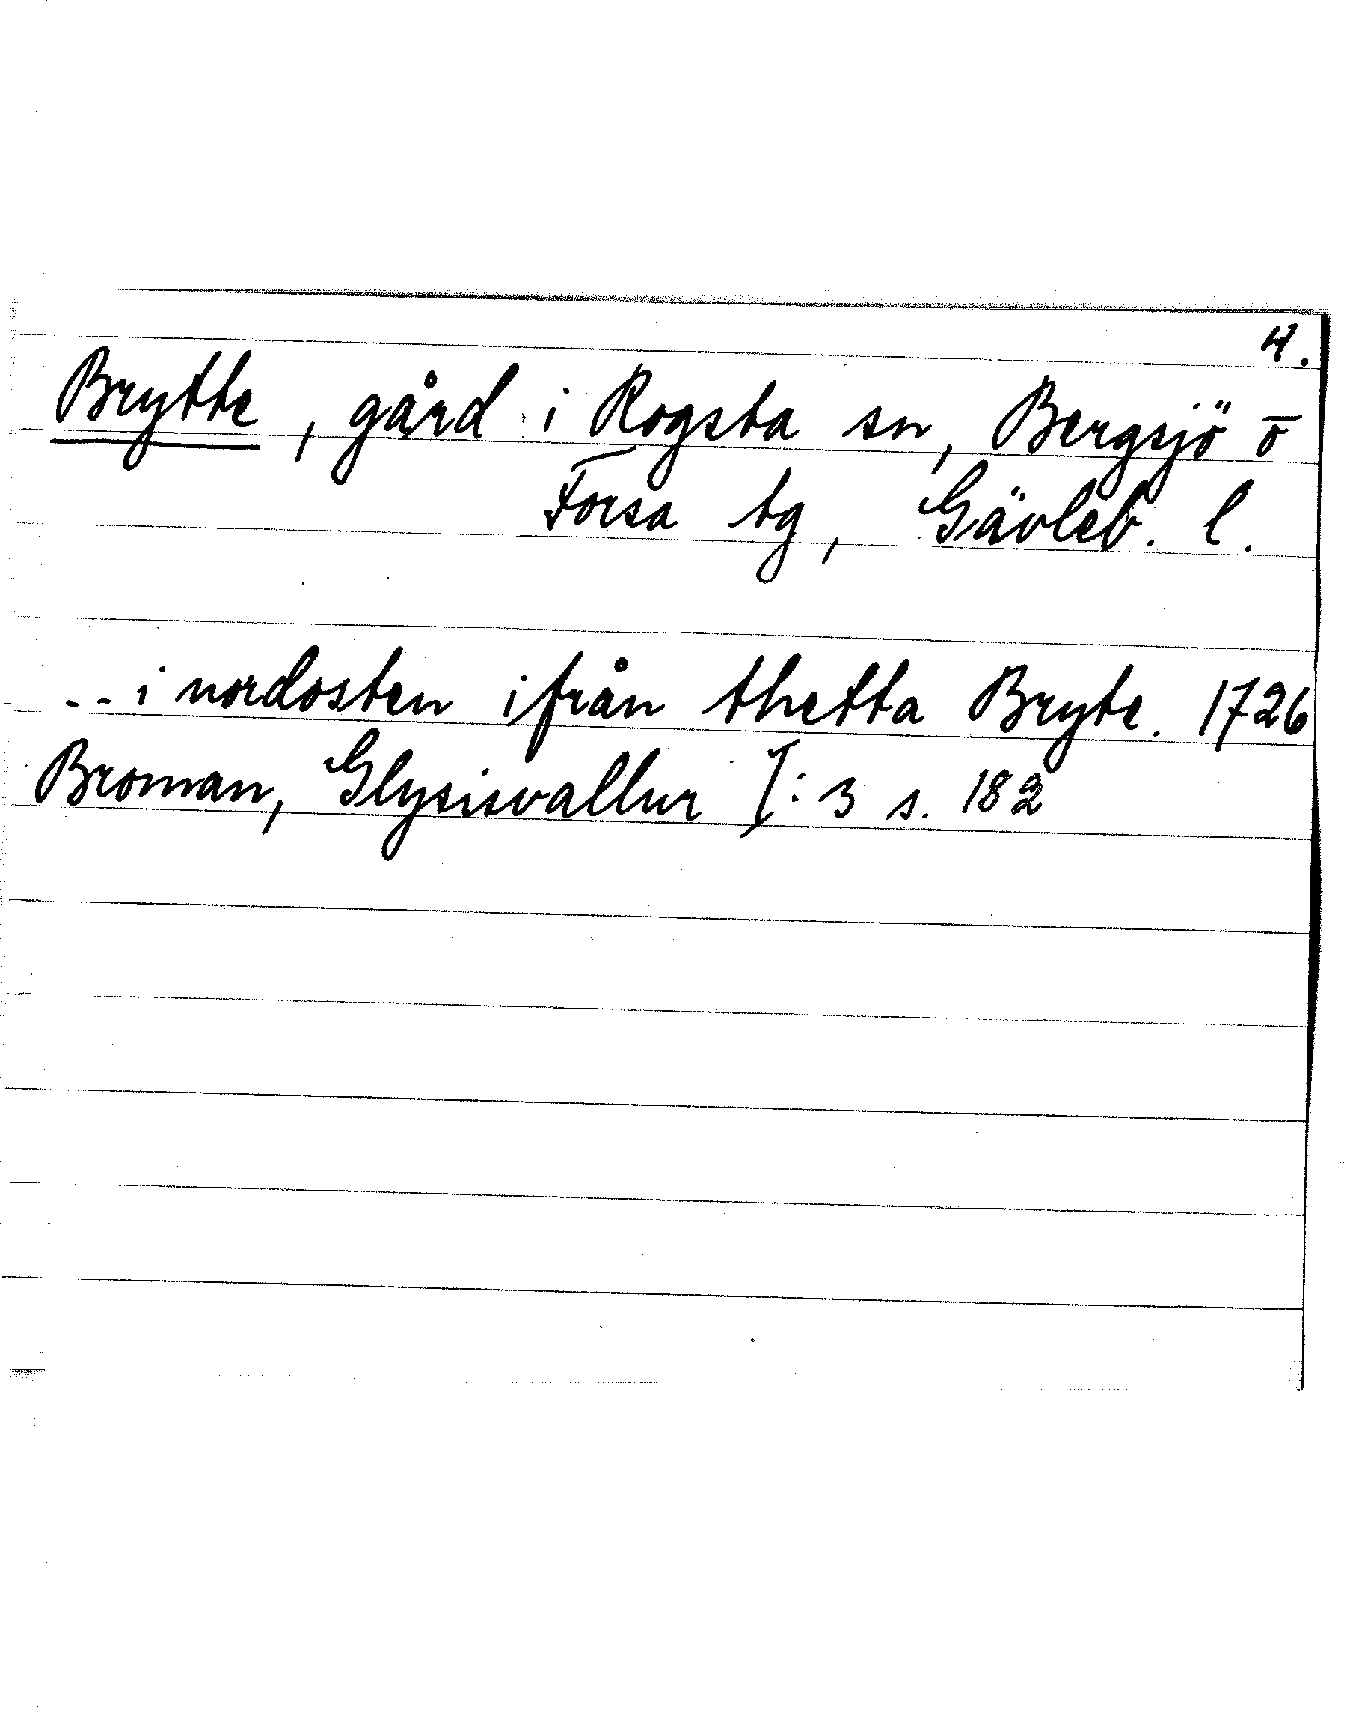 4.
Brytte, gård i Rogsta sn, Bergsjö o
Forsa tg, Gävleb. l.
-- i nordosten ifrån thetta Bryte. 1726
Broman, Glysisvallur I:3 s. 182